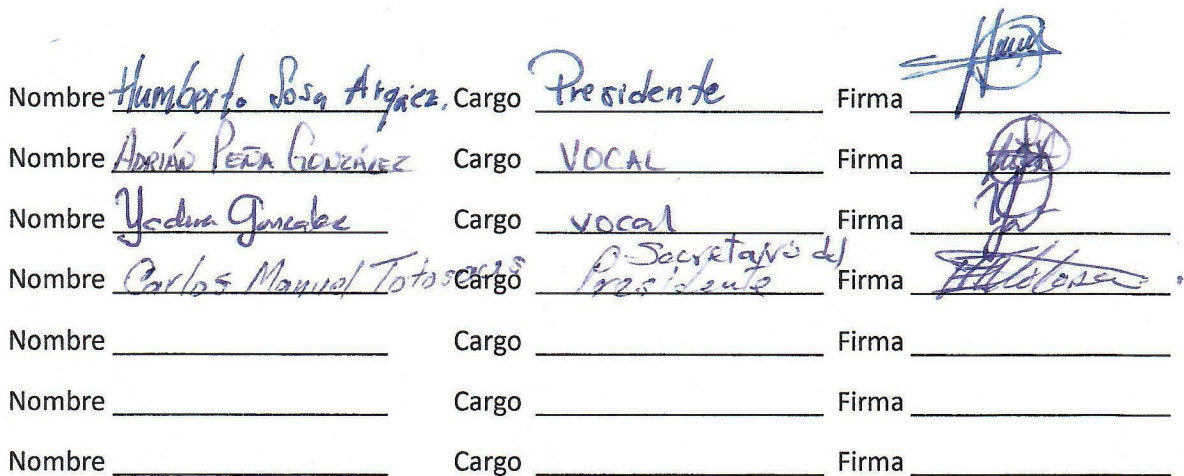 Nombre Humberto Sosa Argáez. Cargo Presidente Firma
Nombre ADRIÁN PEÑA GONZÁLEZ Cargo VOCAL Firma
Nombre Yadira Gonzalez Cargo vocal Firma
Secretario del
Nombre Carlos Manuel Cargo Presidente Firma
Nombre Cargo Firma
Nombre Cargo Firma
Nombre Cargo Firma